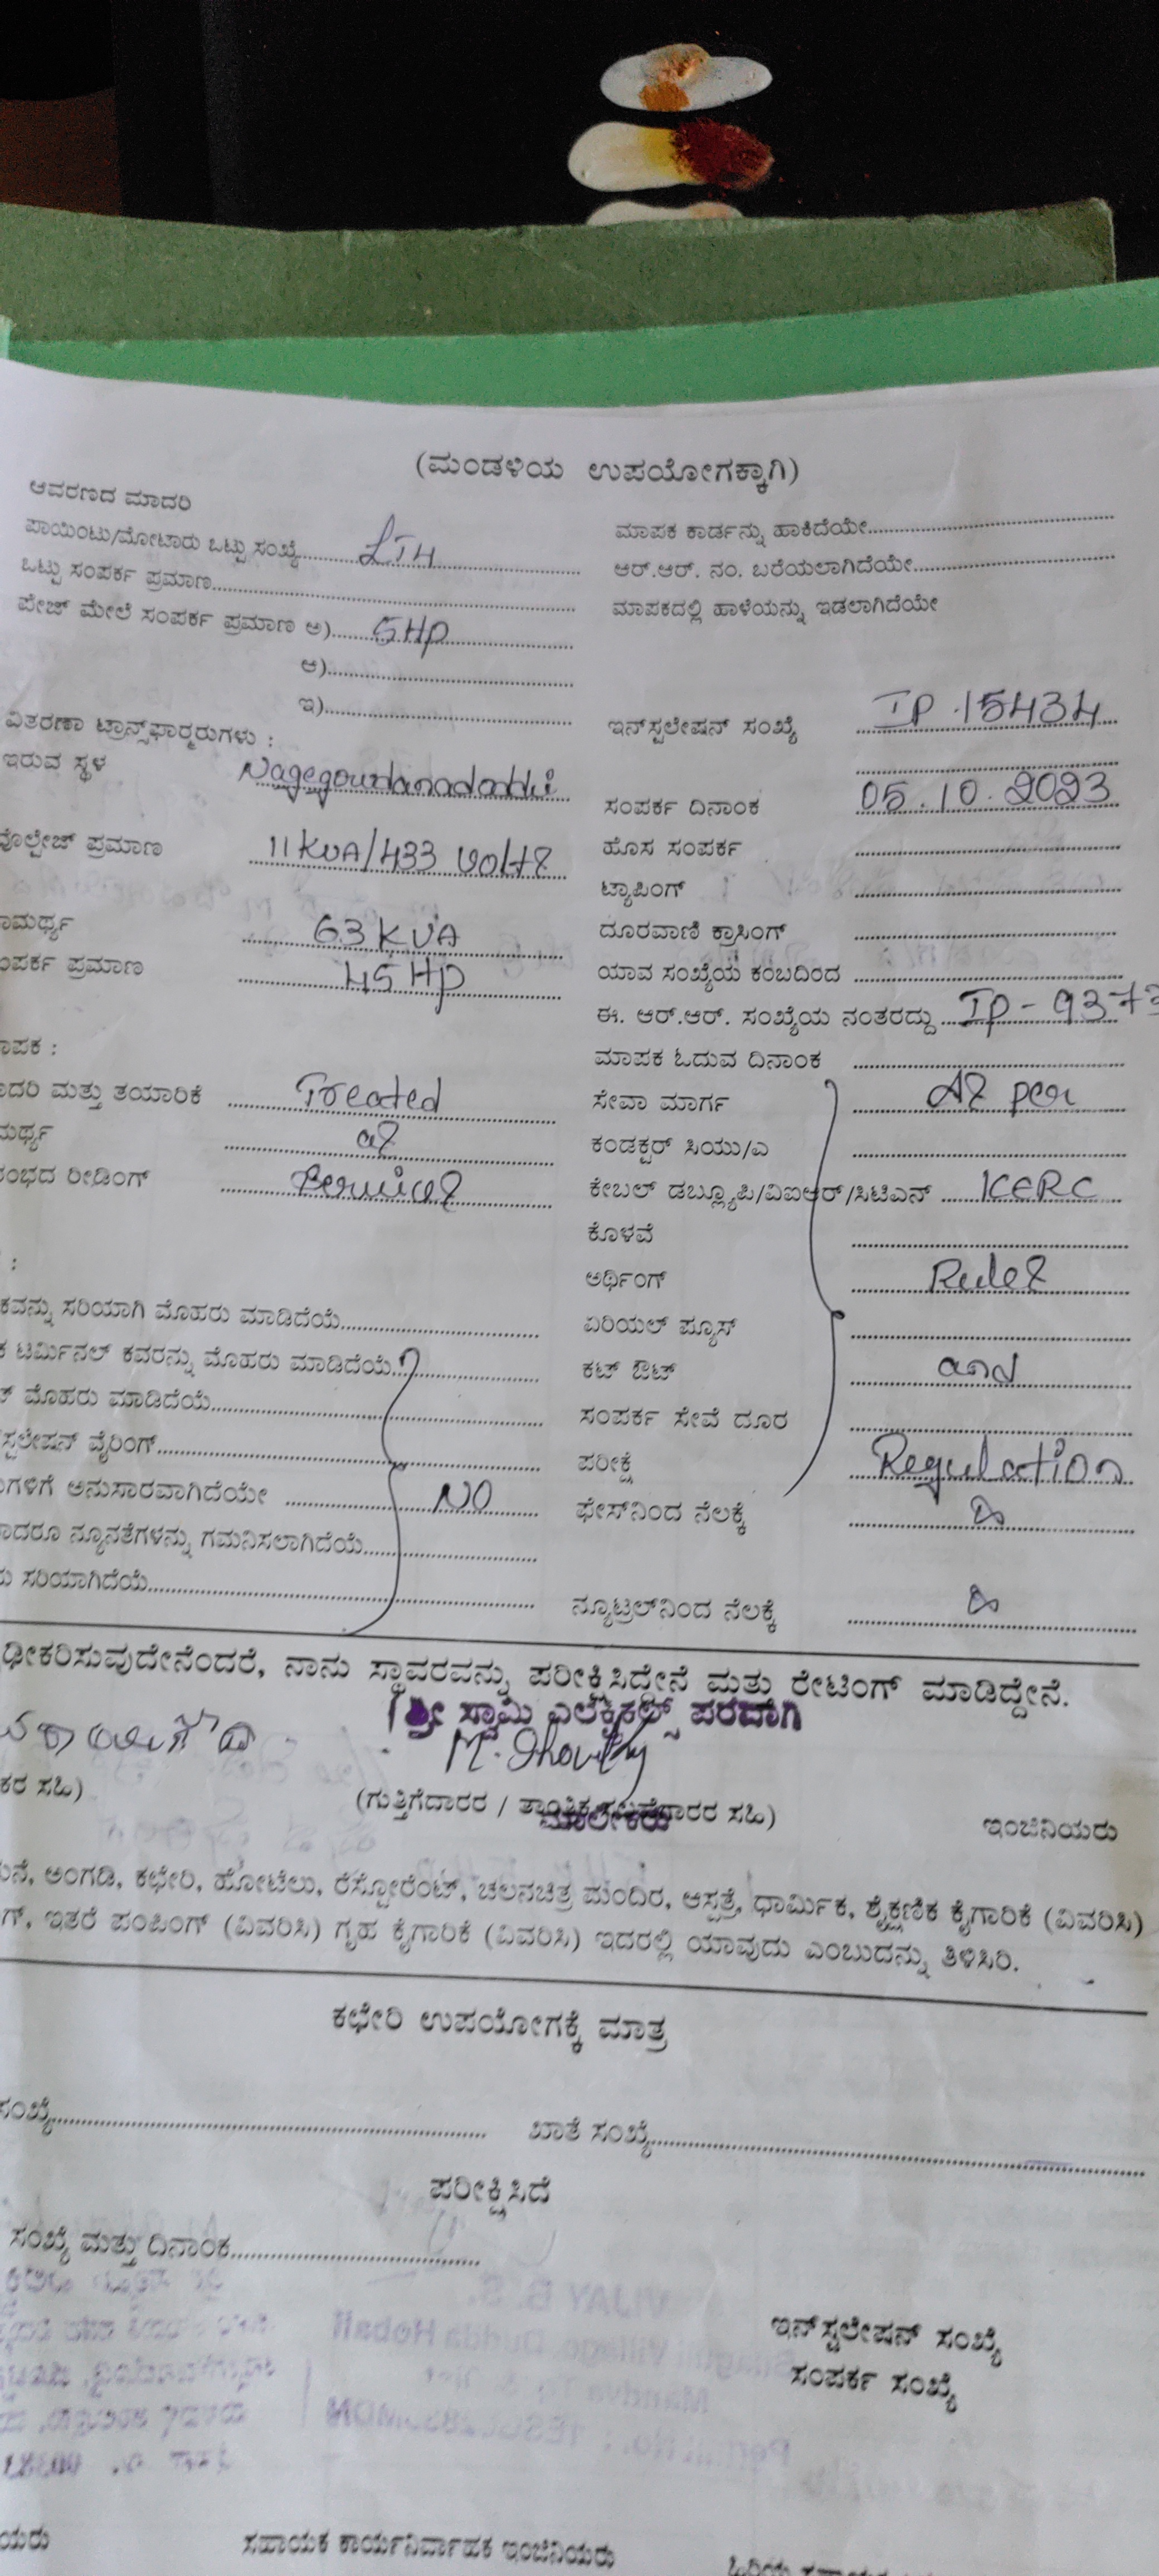 (ಮಂಡಳಿಯ ಉಪಯೋಗಕ್ಕಾಗಿ)
ಆವರಣದ ಮಾದರಿ
ಪಾಯಿಂಟು/ಮೋಟಾರು ಒಟ್ಟು ಸಂಖ್ಯೆ LT4
ಮಾಪಕ ಕಾರ್ಡನ್ನು ಹಾಕಿದೆಯೇ
ಒಟ್ಟು ಸಂಪರ್ಕ ಪ್ರಮಾಣ
ಆರ್.ಆರ್. ನಂ. ಬರೆಯಲಾಗಿದೆಯೇ
ಪೇಜ್ ಮೇಲೆ ಸಂಪರ್ಕ ಪ್ರಮಾಣ ಅ) 5HP
ಮಾಪಕದಲ್ಲಿ ಹಾಳೆಯನ್ನು ಇಡಲಾಗಿದೆಯೇ
ಆ)
ಇ)
ಇನ್‌ಸ್ಟಲೇಷನ್ ಸಂಖ್ಯೆ IP.15434
ವಿತರಣಾ ಟ್ರಾನ್ಸ್‌ಫಾರ್‍ಮರುಗಳು :
ಇರುವ ಸ್ಥಳ Nagegowdanadoddi
ಸಂಪರ್ಕ ದಿನಾಂಕ 05.10.2023
ವೊಲ್ಟೇಜ್ ಪ್ರಮಾಣ 11KVA/433 Volts
ಹೊಸ ಸಂಪರ್ಕ
ಟ್ಯಾಪಿಂಗ್
ಾಮರ್ಥ್ಯ 63 KVA
ದೂರವಾಣಿ ಕ್ರಾಸಿಂಗ್
ಂಪರ್ಕ ಪ್ರಮಾಣ 45 HP
ಯಾವ ಸಂಖ್ಯೆಯ ಕಂಬದಿಂದ
ಈ. ಆರ್.ಆರ್. ಸಂಖ್ಯೆಯ ನಂತರದ್ದು IP-9373
ಾಪಕ :
ಮಾಪಕ ಓದುವ ದಿನಾಂಕ
ಾದರಿ ಮತ್ತು ತಯಾರಿಕೆ Treated
ಸೇವಾ ಮಾರ್ಗ As per
ಮರ್ಥ್ಯ as
ಕಂಡಕ್ಟರ್ ಸಿಯು/ಎ
ರಂಭದ ರೀಡಿಂಗ್ Services
ಕೇಬಲ್ ಡಬ್ಲ್ಯೂಪಿ/ವಿಐಆರ್/ಸಿಟಿಎನ್ KERC
ಕೊಳವೆ
ಅರ್ಥಿಂಗ್ Rules
ಕವನ್ನು ಸರಿಯಾಗಿ ಮೊಹರು ಮಾಡಿದೆಯೆ
ಏರಿಯಲ್ ಪ್ಯೂಸ್
ಕ ಟರ್ಮಿನಲ್ ಕವರನ್ನು ಮೊಹರು ಮಾಡಿದೆಯೆ
ಕಟ್ ಔಟ್ and
ಟ್ ಮೊಹರು ಮಾಡಿದೆಯೆ
ಸಂಪರ್ಕ ಸೇವೆ ದೂರ
ಸ್ಟಲೇಷನ್ ವೈರಿಂಗ್
ಪರೀಕ್ಷೆ Regulation
ಗಳಿಗೆ ಅನುಸಾರವಾಗಿದೆಯೇ NO
ಫೇಸ್‌ನಿಂದ ನೆಲಕ್ಕೆ
ಾದರೂ ನ್ಯೂನತೆಗಳನ್ನು ಗಮನಿಸಲಾಗಿದೆಯೆ
ು ಸರಿಯಾಗಿದೆಯೆ
ನ್ಯೂಟ್ರಲ್‌ನಿಂದ ನೆಲಕ್ಕೆ
ಢೀಕರಿಸುವುದೇನೆಂದರೆ, ನಾನು ಸ್ಥಾವರವನ್ನು ಪರೀಕ್ಷಿಸಿದ್ದೇನೆ ಮತ್ತು ರೇಟಿಂಗ್ ಮಾಡಿದ್ದೇನೆ.
ಶ್ರೀ ಸ್ವಾಮಿ ಎಲೆಕ್ಟ್ರಿಕಲ್ಸ್ ಪರವಾಗಿ
ಕರ ಸಹಿ)
(ಗುತ್ತಿಗೆದಾರರ / ತಾಂತ್ರಿಕ ಸಲಹೆಗಾರರ ಸಹಿ)
ಮಾಲೀಕರು
ಇಂಜಿನಿಯರು
ಮನೆ, ಅಂಗಡಿ, ಕಛೇರಿ, ಹೋಟೆಲು, ರೆಸ್ಟೋರೆಂಟ್, ಚಲನಚಿತ್ರ ಮಂದಿರ, ಆಸ್ಪತ್ರೆ, ಧಾರ್ಮಿಕ, ಶೈಕ್ಷಣಿಕ ಕೈಗಾರಿಕೆ (ವಿವರಿಸಿ)
ಗ್, ಇತರೆ ಪಂಪಿಂಗ್ (ವಿವರಿಸಿ) ಗೃಹ ಕೈಗಾರಿಕೆ (ವಿವರಿಸಿ) ಇದರಲ್ಲಿ ಯಾವುದು ಎಂಬುದನ್ನು ತಿಳಿಸಿರಿ.
ಕಛೇರಿ ಉಪಯೋಗಕ್ಕೆ ಮಾತ್ರ
ಸಂಖ್ಯೆ
ಖಾತೆ ಸಂಖ್ಯೆ
ಪರೀಕ್ಷಿಸಿದೆ
ಸಂಖ್ಯೆ ಮತ್ತು ದಿನಾಂಕ
ಇನ್‌ಸ್ಟಲೇಷನ್ ಸಂಖ್ಯೆ
ಸಂಪರ್ಕ ಸಂಖ್ಯೆ
ಯರು
ಸಹಾಯಕ ಕಾರ್ಯನಿರ್ವಾಹಕ ಇಂಜಿನಿಯರು